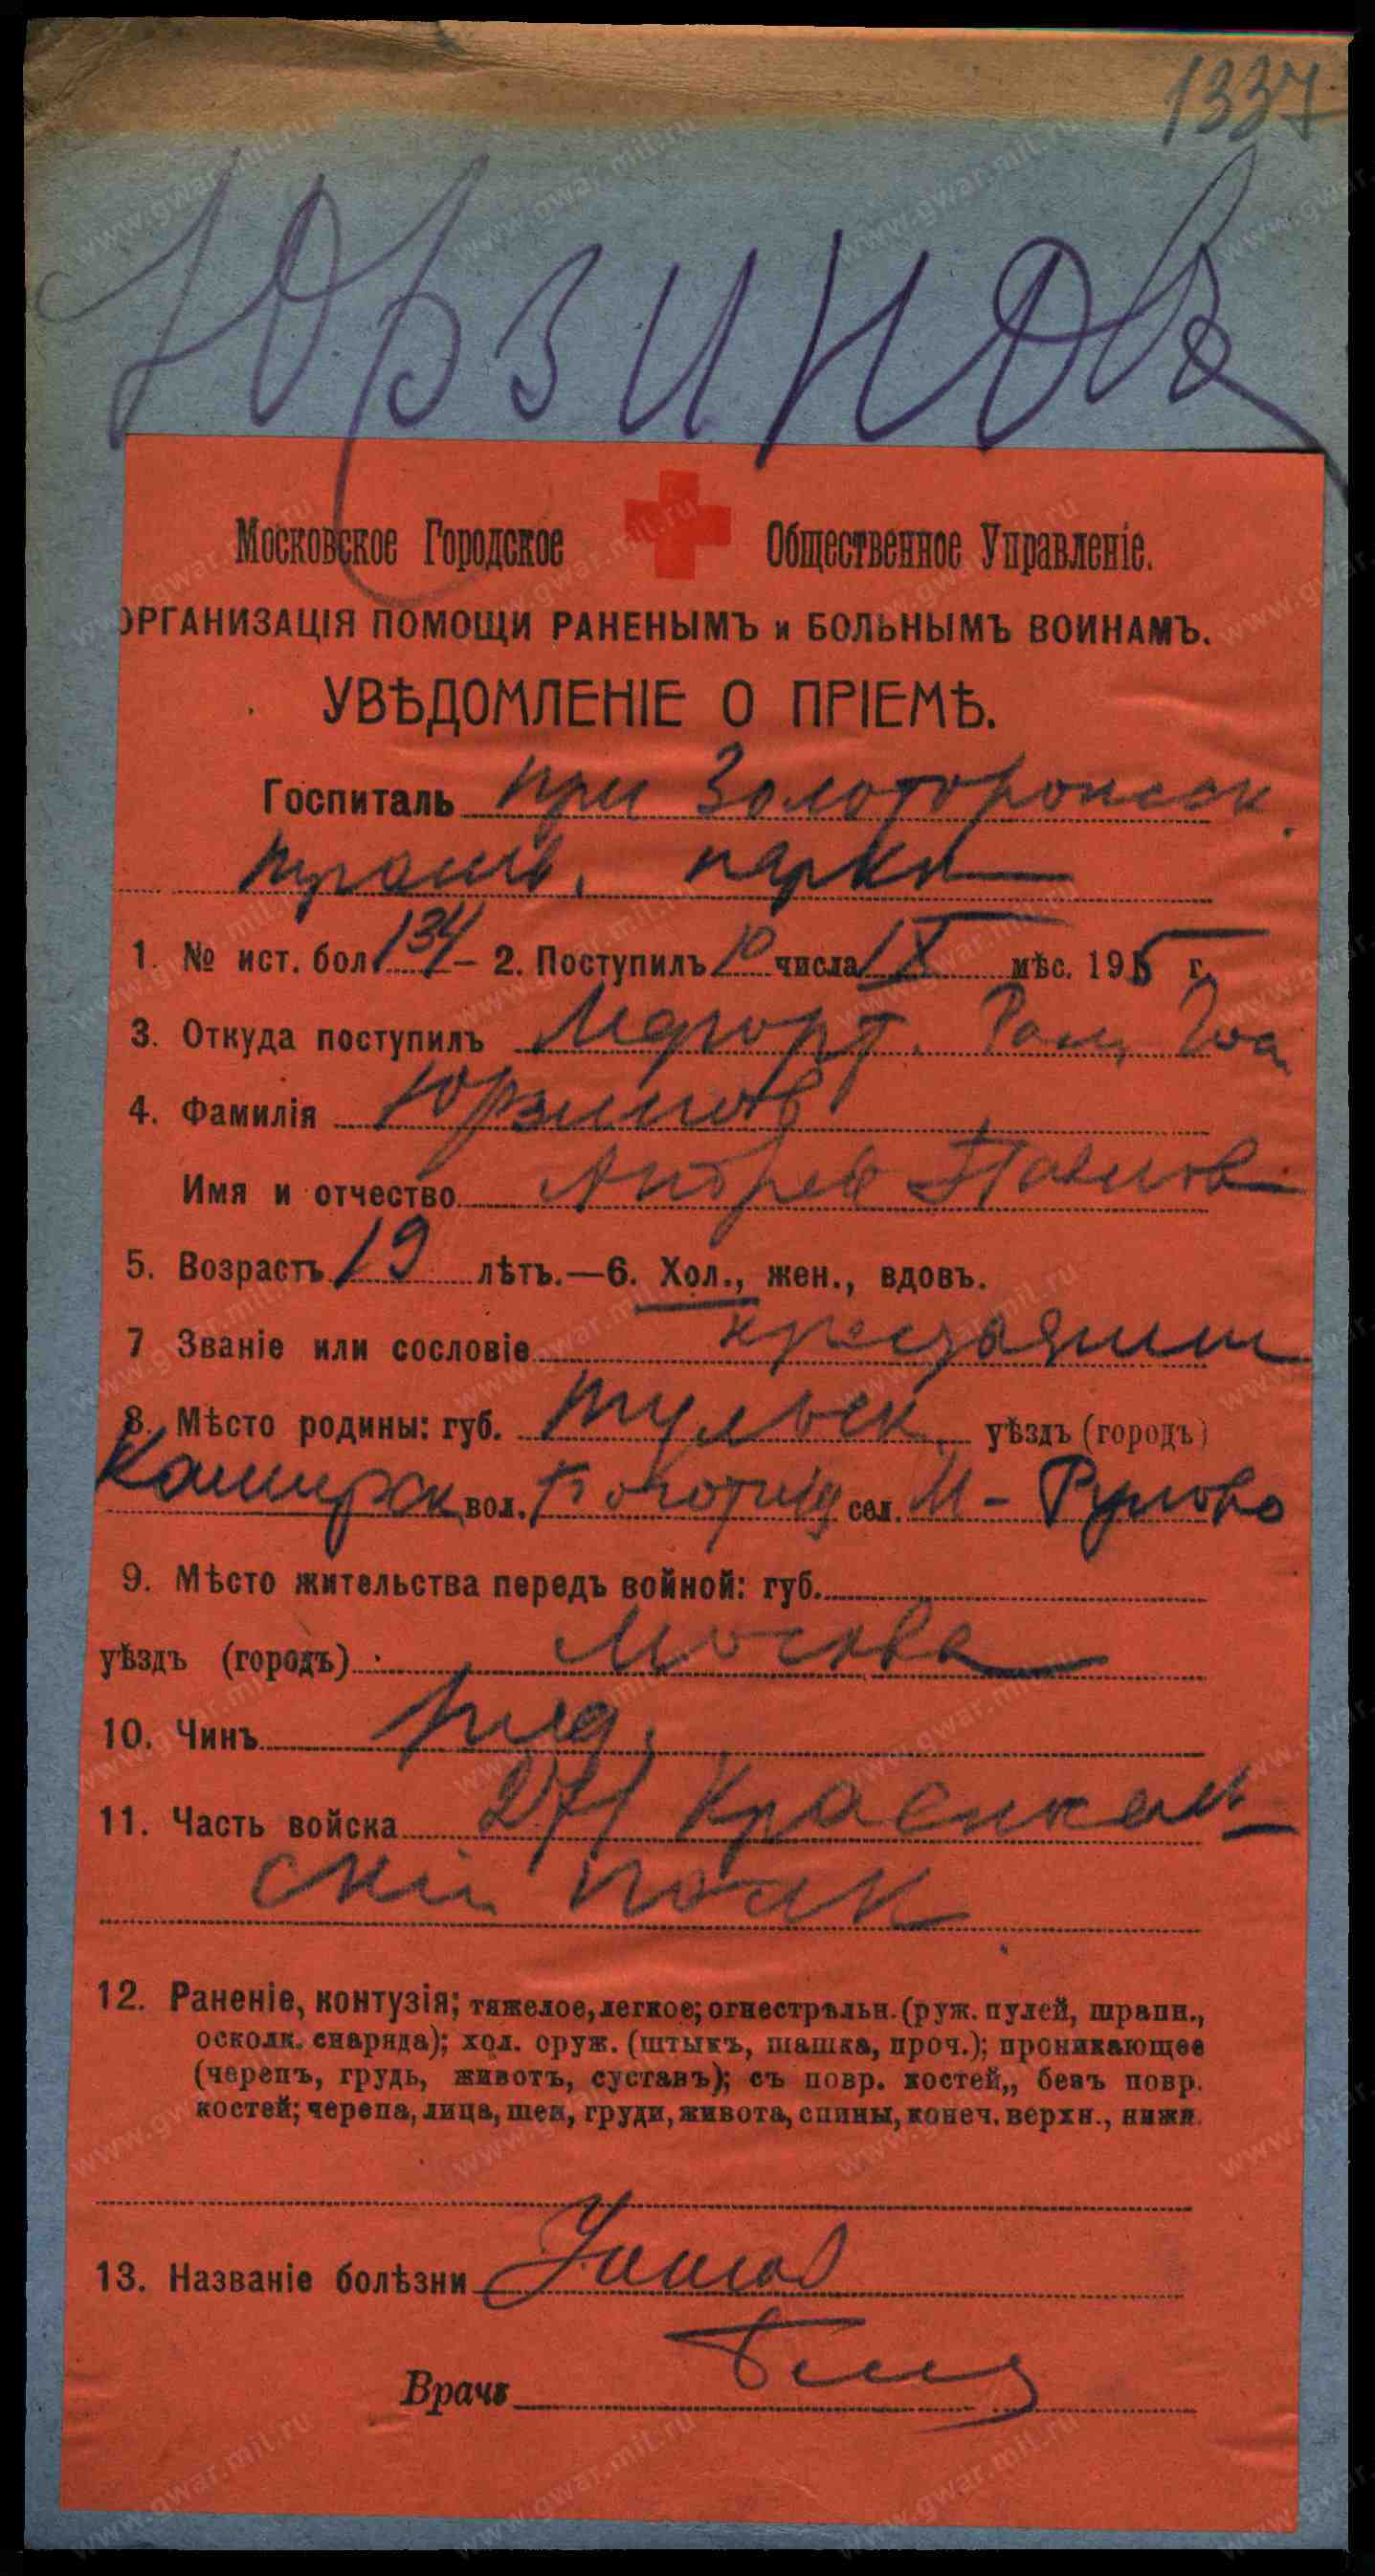 1337
Юрзинов
Московское Городское Общественное Управленіе.
ОРГАНИЗАЦІЯ ПОМОЩИ РАНЕНЫМЪ и БОЛЬНЫМЪ ВОИНАМЪ.
УВѢДОМЛЕНІЕ О ПРІЕМѢ.
Госпиталь при Золоторожск
трамв. парки
1. № ист. бол. 134 – 2. Поступилъ 10 числа IX мѣс. 1915 г.
3. Откуда поступилъ
4. Фамилія Юрзинов
Имя и отчество Андрей Павлов
5. Возрастъ 19 лѣтъ.—6. Хол., жен., вдовъ.
7 Званіе или сословіе крестьянин
8. Мѣсто родины: губ. Тульск уѣздъ (городъ)
Каширск вол. сел. М-Руново
9. Мѣсто жительства передъ войной: губ.
уѣздъ (городъ) Москва
10. Чинъ ряд.
11. Часть войска 271 Красносель
скій полк
12. Раненіе, контузія; тяжелое, легкое; огнестрѣльн. (руж. пулей, шрапн.,
осколк. снаряда); хол. оруж. (штыкъ, шашка, проч.); проникающее
(черепъ, грудь, животъ, суставъ); съ повр. костей,, безъ повр.
костей; черепа, лица, шеи, груди, живота, спины, конеч. верхн., нижн.
13. Названіе болѣзни
Врачъ